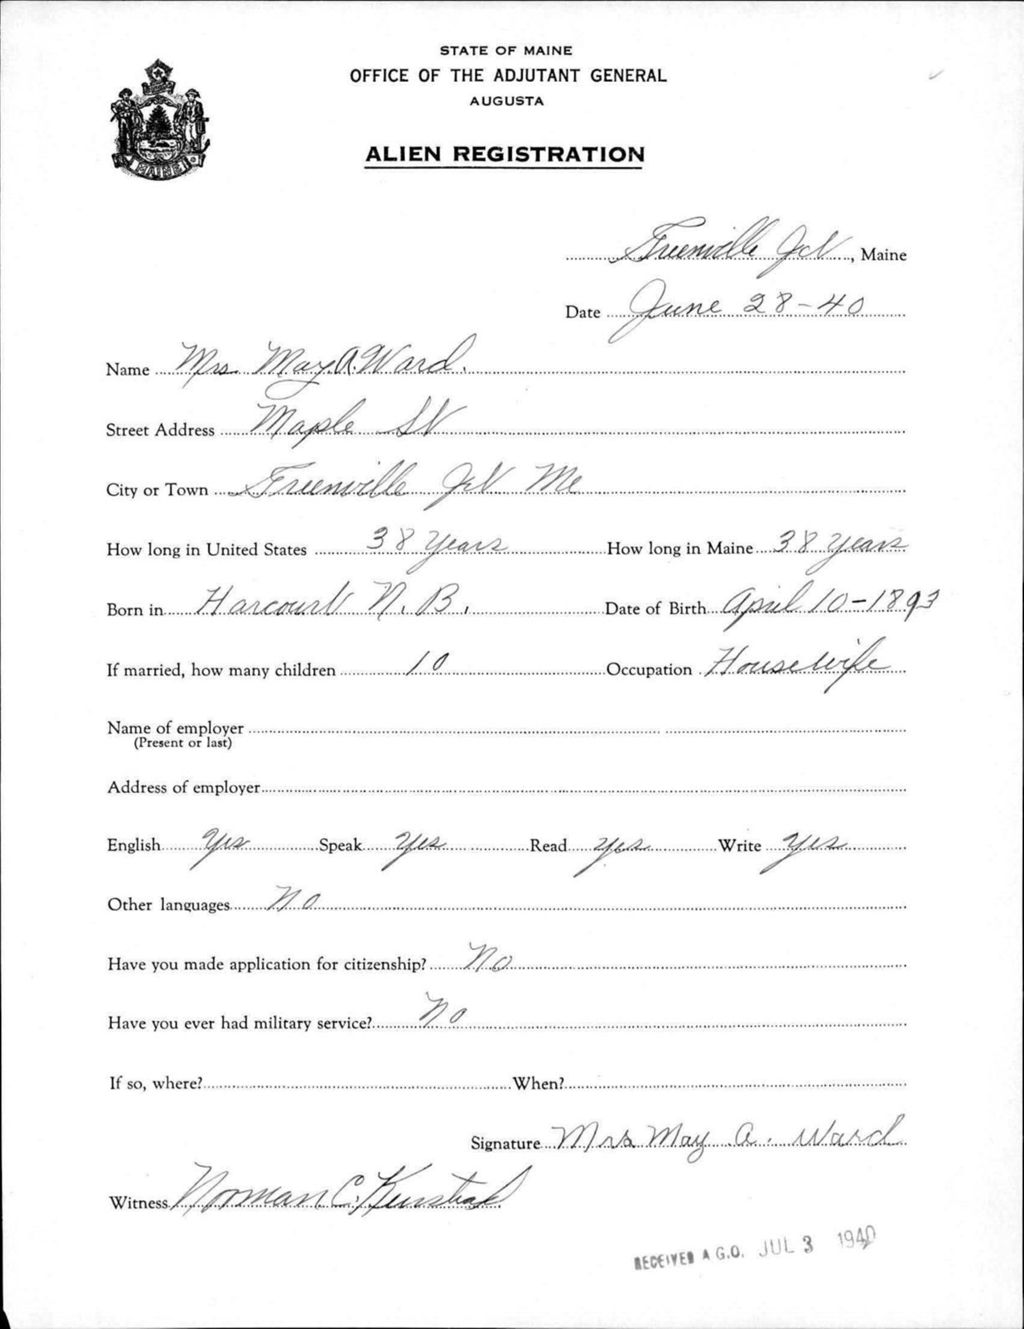 STATE OF MAINE
OFFICE OF THE ADJUTANT GENERAL
AUGUSTA
ALIEN REGISTRATION
MAINE
Greenville Jct, Maine
Date June 28-40
Name Mrs. May A. Ward.
Street Address Maple St
City or Town Greenville Jct Me
How long in United States 38 Years How long in Maine 38 Years
Born in Harcourt N.B. Date of Birth April 10-1893
If married, how many children 10 Occupation Housewife
Name of employer
(Present or last)
Address of employer
English Yes Speak Yes Read yes Write Yes
Other languages No
Have you made application for citizenship? No
Have you ever had military service? No
If so, where? When?
Signature Mrs May A. Ward
Witness Norman C.
RECEIVED A.G.O. JUL 3 1940